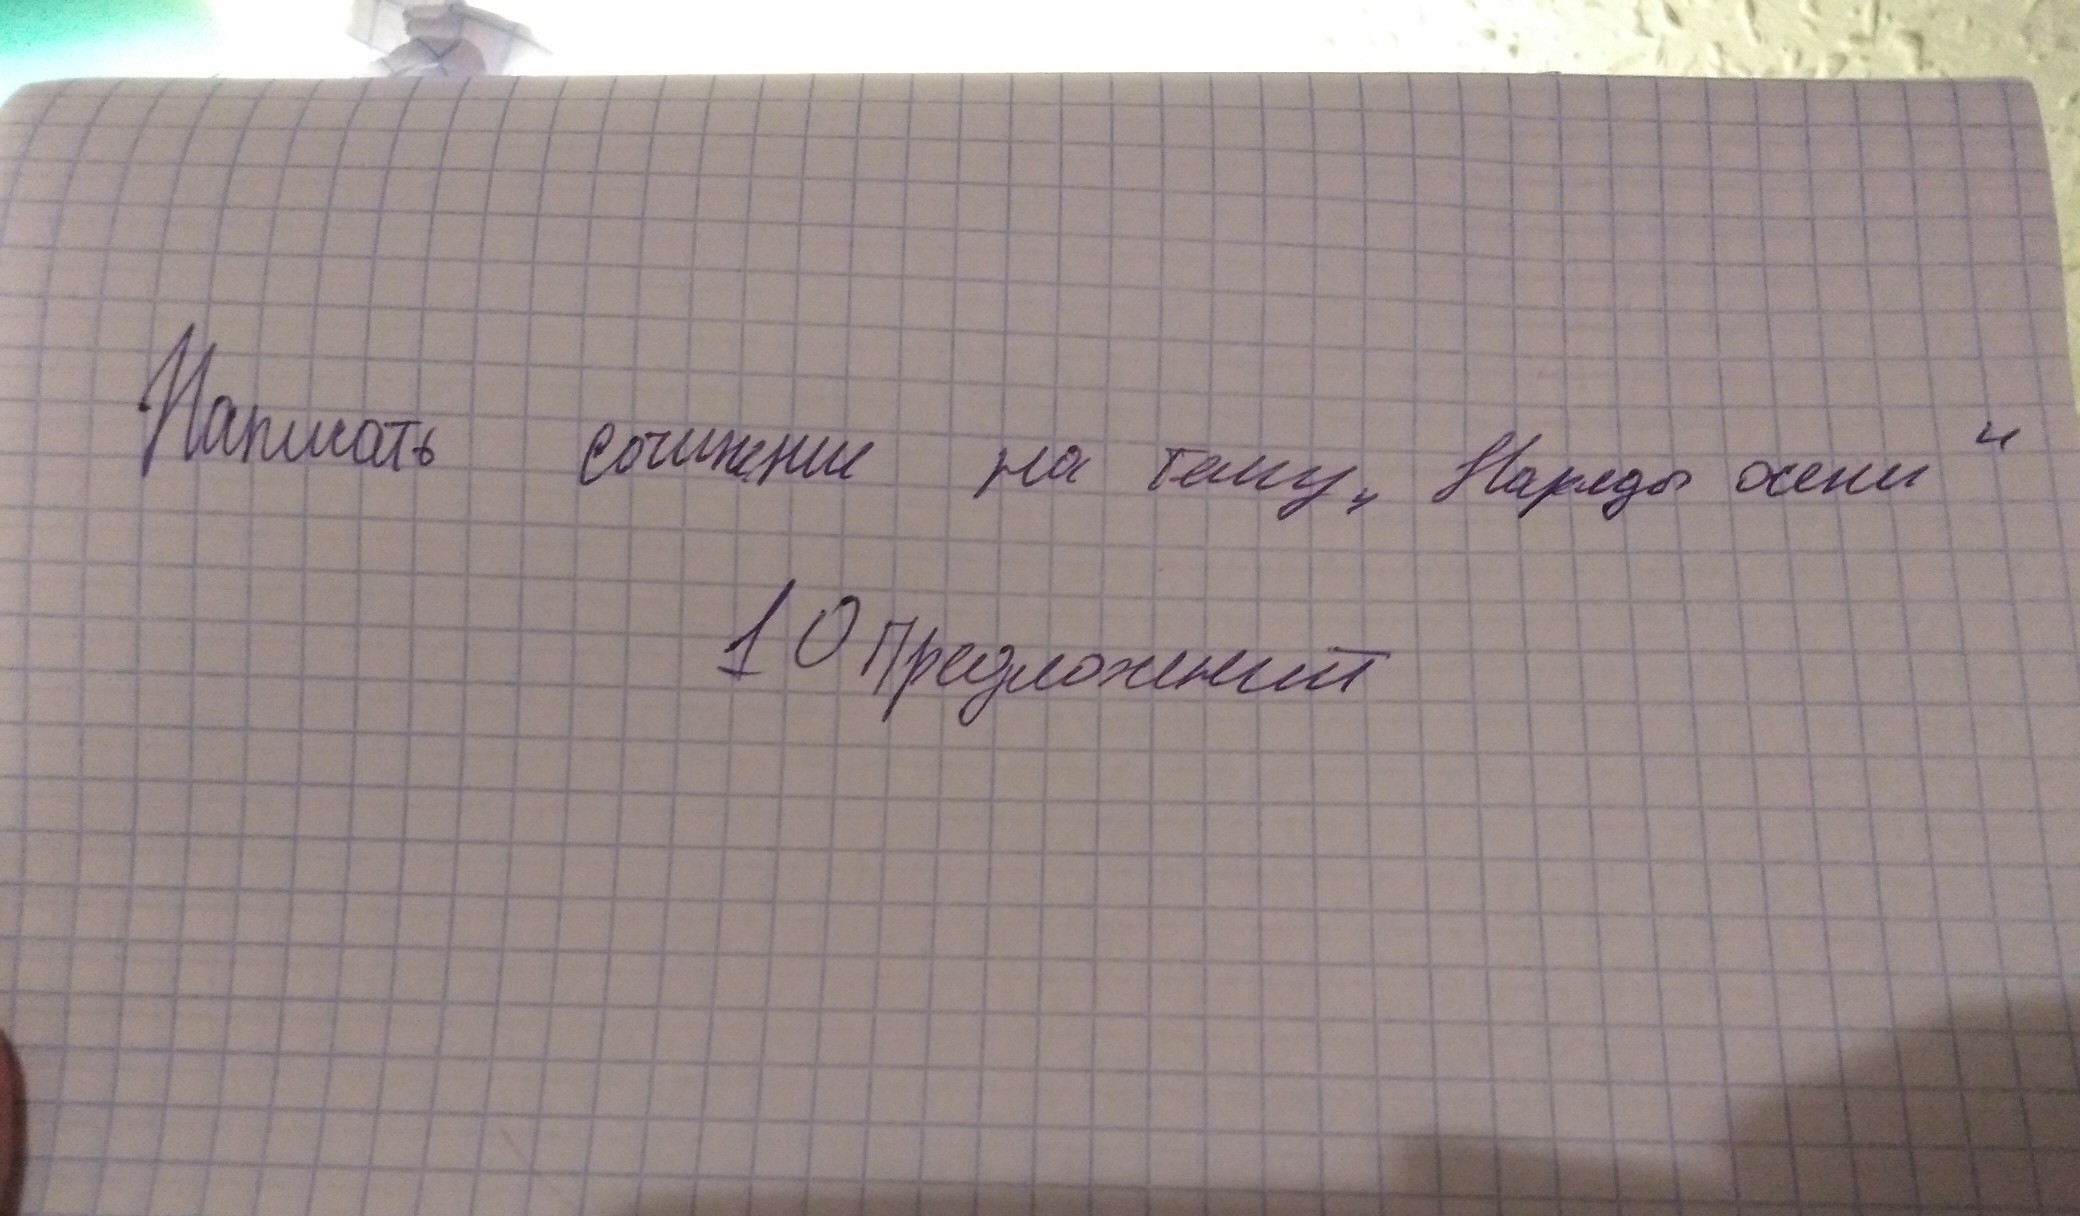 Написать сочинение на тему „Наряды осени“
10 Предложений